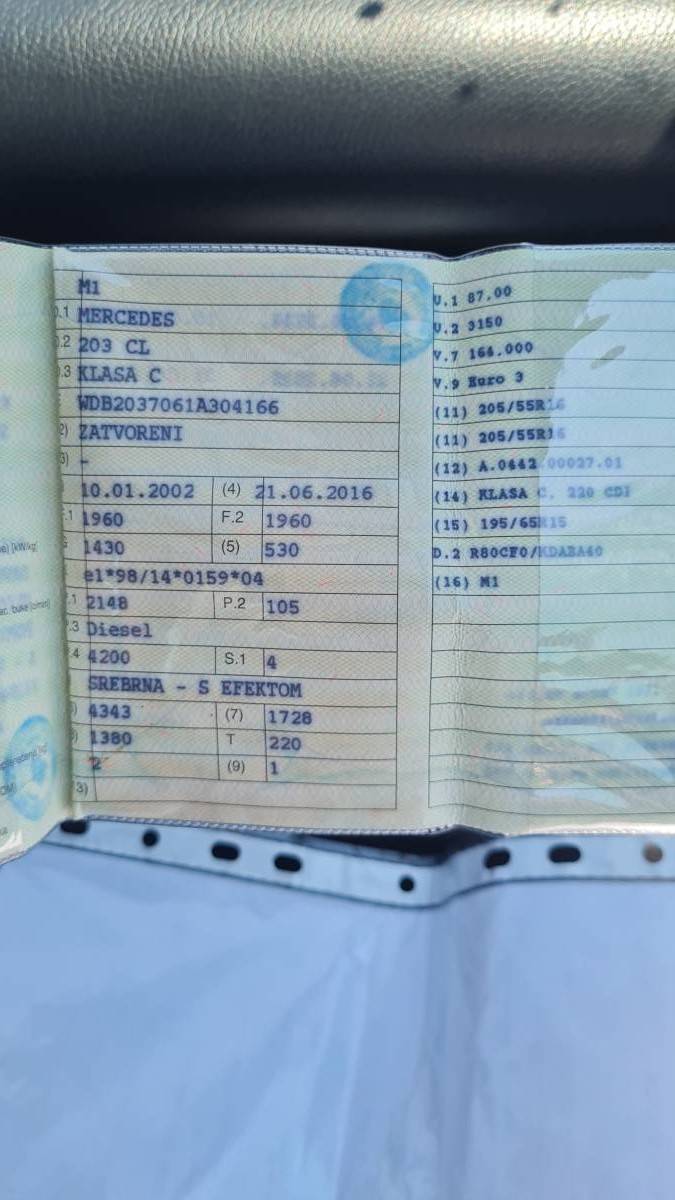 M1
.1 MERCEDES
.2 203 CL
.3 KLASA C
WDB2037061A304166
2) ZATVORENI
3) -
10.01.2002 (4) 21.06.2016
.1 1960 F.2 1960
1430 (5) 530
e1*98/14*0159*04
.1 2148 P.2 105
.3 Diesel
.4 4200 S.1 4
SREBRNA - S EFEKTOM
) 4343 (7) 1728
) 1380 T 220
2 (9) 1
3)
V.1 87.00
V.2 3150
V.7 164.000
V.9 Euro 3
(11) 205/55R16
(11) 205/55R16
(12) A.0442 00027.01
(14) KLASA C, 220 CDI
(15) 195/65R15
D.2 R80CF0/KDABA40
(16) M1